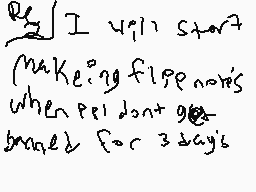 Re I will start
Makeing flipnote's
when ppl dont get
banned for 3 day's